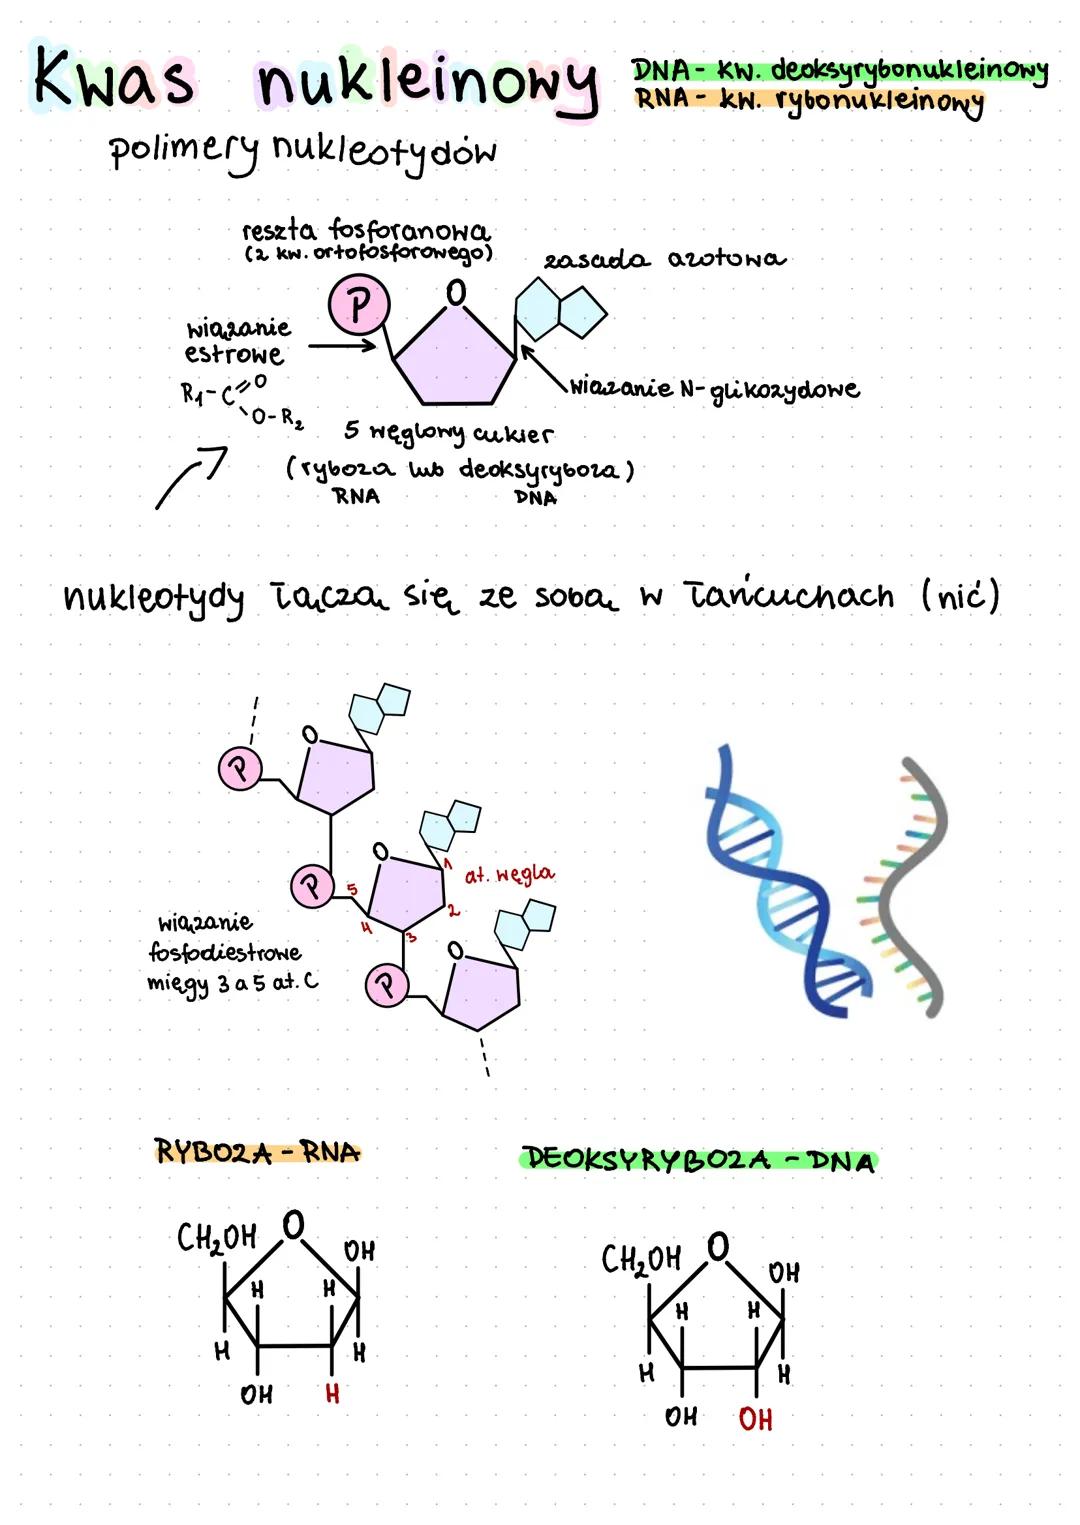 Kwas nukleinowy
DNA - kw. deoksyrybonukleinowy
RNA - kw. rybonukleinowy
polimery nukleotydów
reszta fosforanowa
(z kw. ortofosforowego)
zasada azotowa
P
O
wiązanie
estrowe
R₁-C=O
O-R₂
wiązanie N-glikozydowe
5 węglowy cukier
(ryboza lub deoksyryboza)
RNA DNA
nukleotydy łączą się ze sobą w łańcuchach (nić)
O
P
O
1
at. węgla
P
5
2
4
3
wiązanie
fosfodiestrowe
mięgy 3 a 5 at. C
O
P
RYBOZA - RNA
DEOKSYRYBOZA - DNA
CH₂OH O OH
H H
H H
OH H
CH₂OH O OH
H H
H H
OH OH